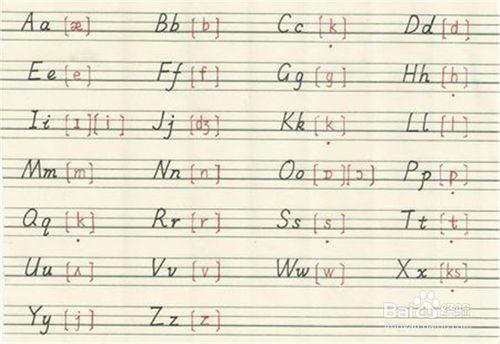 Aa [æ] Bb [b] Cc [k] Dd [d]
Ee [e] Ff [f] Gg [g] Hh [h]
Ii [ɪ][i] Jj [dʒ] Kk [k] Ll [l]
Mm [m] Nn [n] Oo [ɒ][ɔ] Pp [p]
Qq [k] Rr [r] Ss [s] Tt [t]
Uu [ʌ] Vv [v] Ww [w] Xx [ks]
Yy [j] Zz [z]
Baidu 经验
jingyan.baidu.com